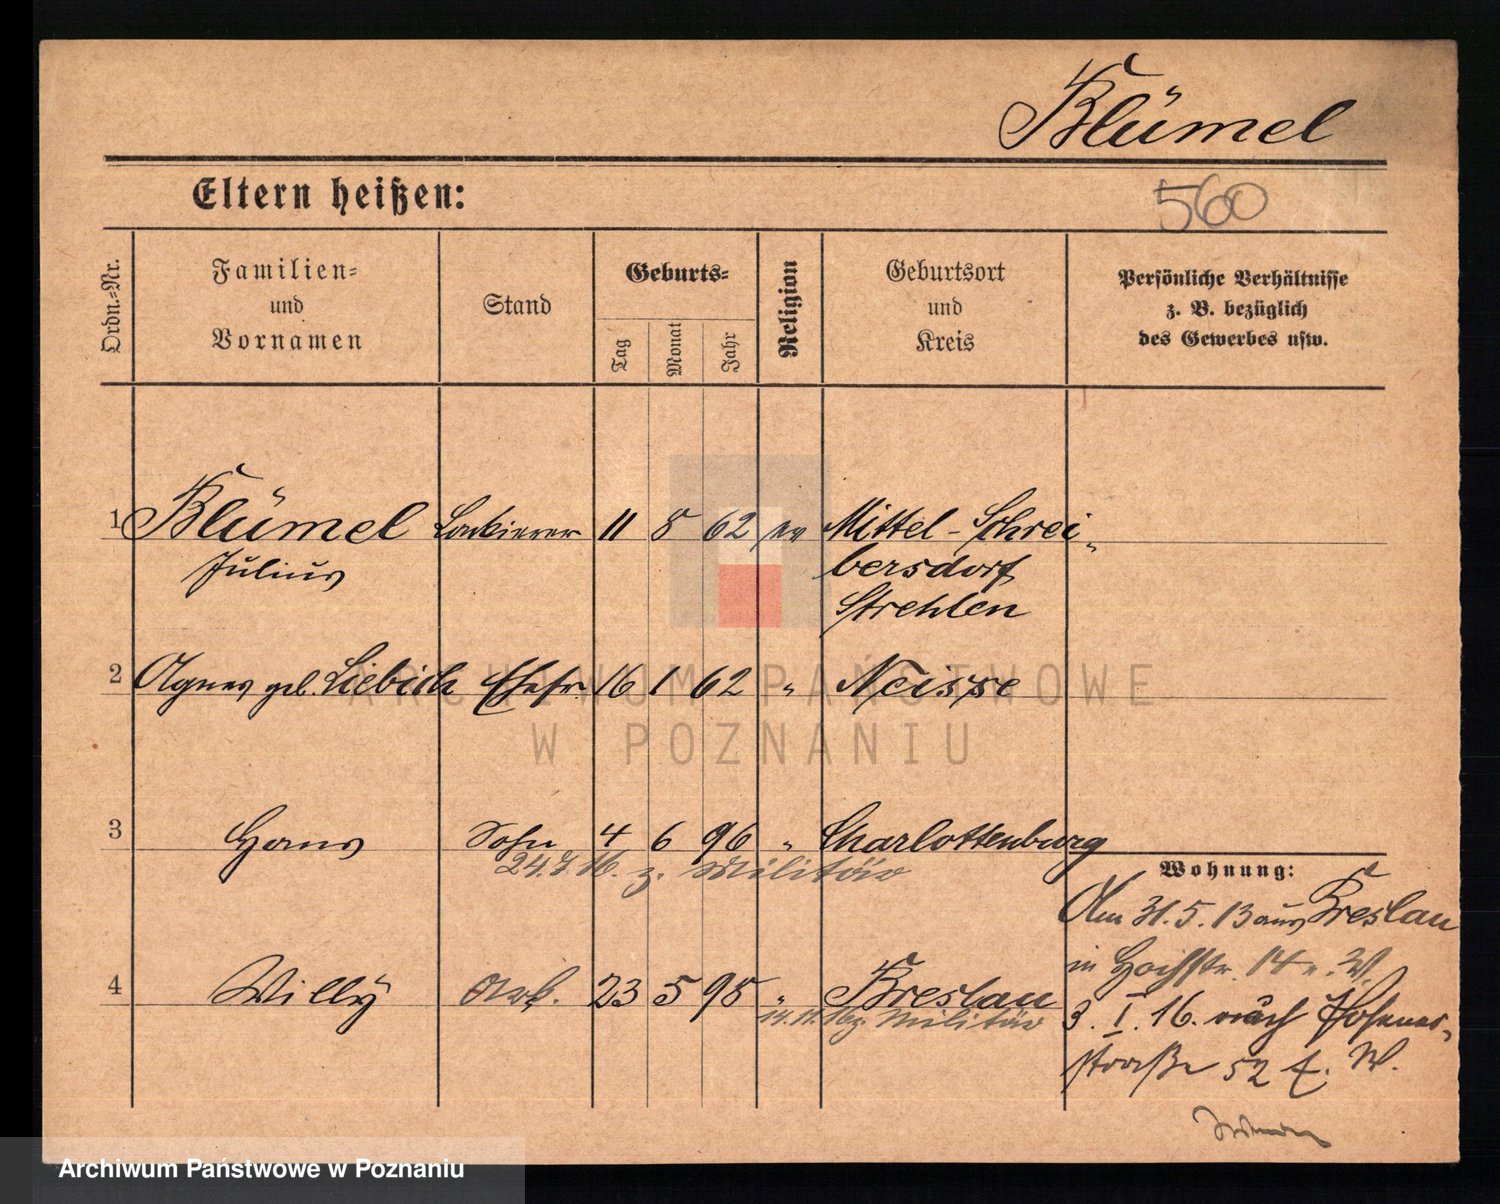 Blümel
Eltern heißen:
560
Ordn.=Nr.
Familien=
und
Vornamen
Stand
Geburts=
Tag
Monat
Jahr
Religion
Geburtsort
und
Kreis
Persönliche Verhältnisse
z. B. bezüglich
des Gewerbes usw.
1 Blümel Lackierer 11 8 62 ev Mittel-Schrei-
Julius bersdorf
Strehlen
2 Agnes geb. Liebich Ehefr. 16 1 62 " Neisse
ARCHIWUM PAŃSTWOWE
W POZNANIU
3 Hans Sohn 4 6 96 " Charlottenburg
z. Militär
Wohnung:
Am 31.5.13 aus Breslau
in Hochstr. 14
4 Willy Arb. 23 5 98 " Breslau
14.11.16 z. Militär
3. I. 16. nach
straße 52 W.
Archiwum Państwowe w Poznaniu